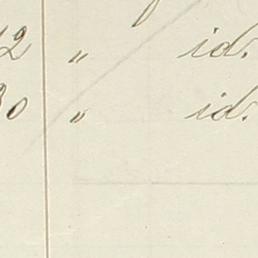 2 „ id.
30 „ id.